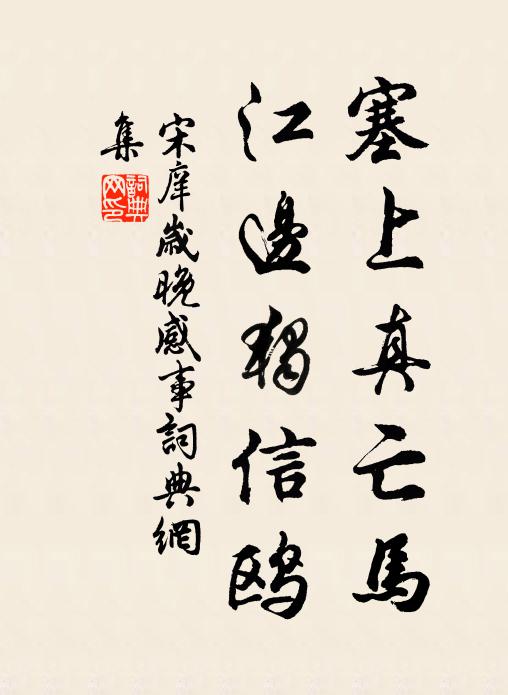 塞上真亡馬
江邊獨信鷗
宋庠歲晚感事詞典網
集
詞典
网印